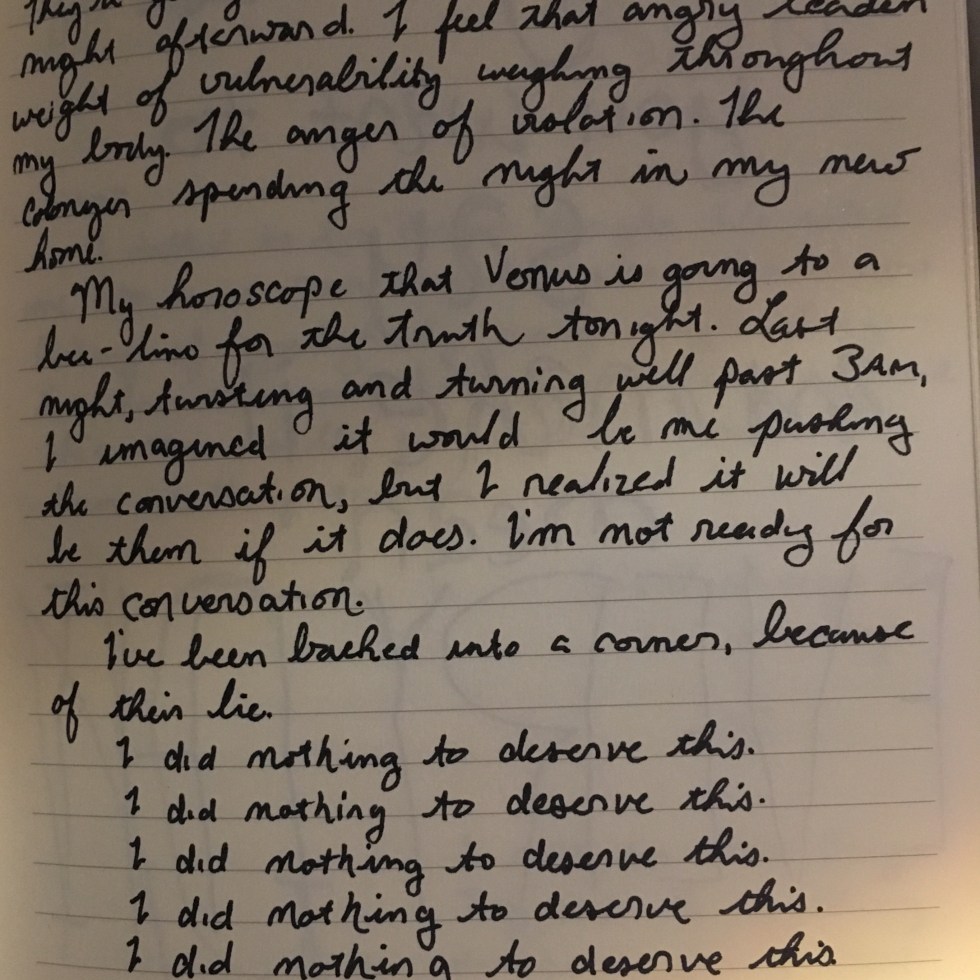 might afterward. I feel that angry leaden
weight of vulnerability weighing throughout
my body. The anger of violation. The
spending the night in my new
home.
My horoscope that Venus is going to a
bee-line for the truth tonight. Last
night, twisting and turning well past 3AM,
I imagined it would be me pushing
the conversation, but I realized it will
be them if it does. I'm not ready for
this conversation.
I've been backed into a corner, because
of their lie.
I did nothing to deserve this.
I did nothing to deserve this.
I did nothing to deserve this.
I did nothing to deserve this.
I did nothing to deserve this.